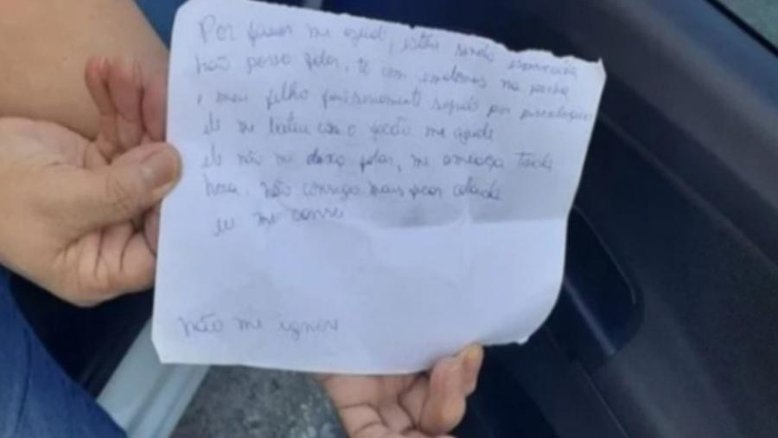 Por favor me ajude, estou sendo espancada
não posso falar, to com
e meu filho por
ele me bateu com o facão me ajude
ele não me deixa falar, me ameaça toda
hora. não consigo mais ficar calada
eu me
não me ignore